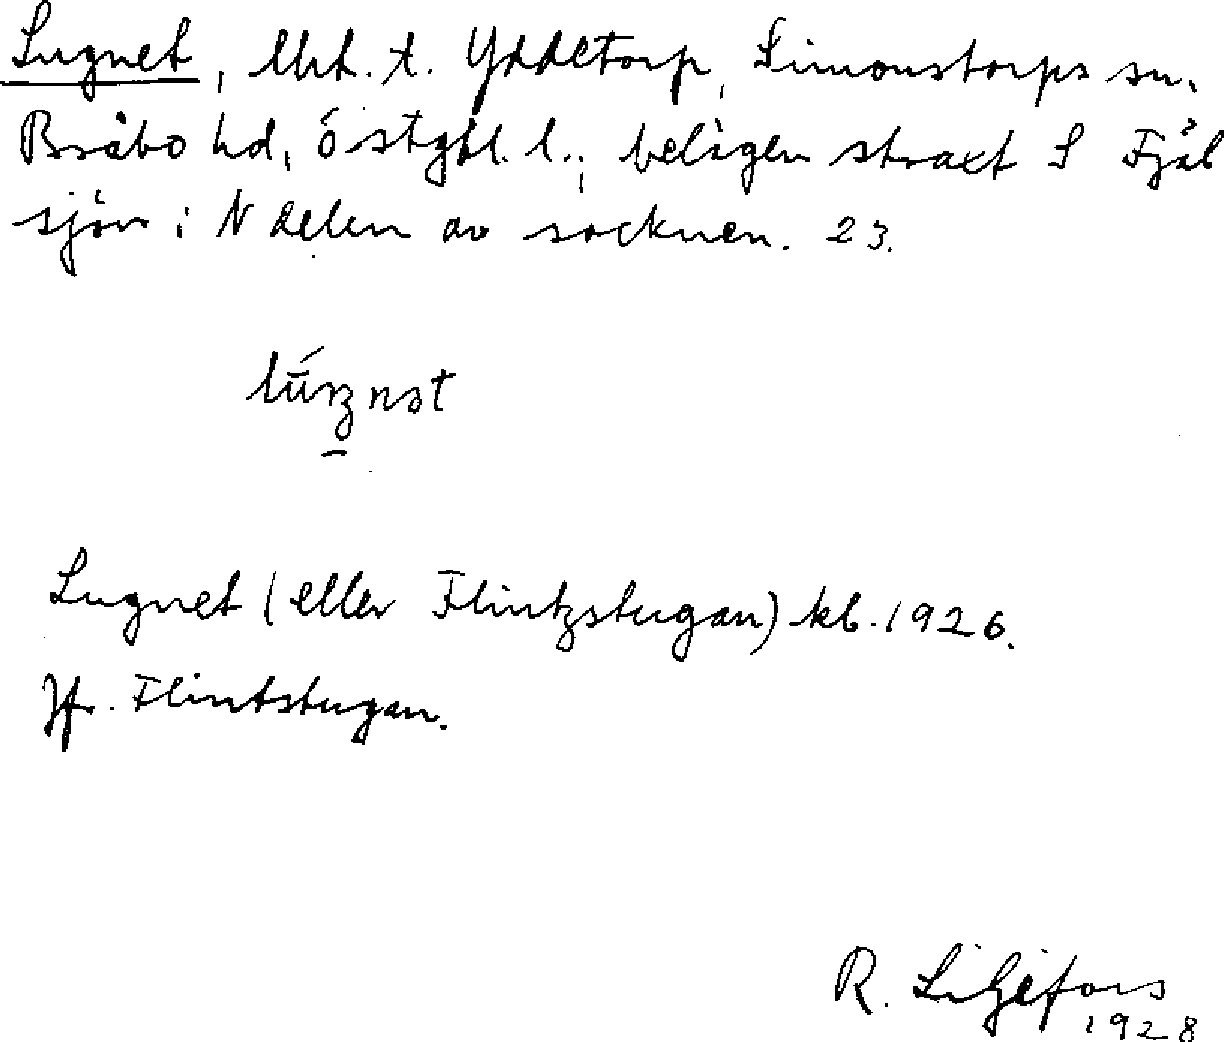 Lugnet, lht. t. Yddetorp, Simonstorps sn.
Bråbo hd, Östgötl. l.; belägen straxt S Fjäl
sjön i N delen av socknen. 23.
Lugnet (eller Flintzstugan) kb. 1926.
Jfr. Flintstugan.
R. Liljefors
1928